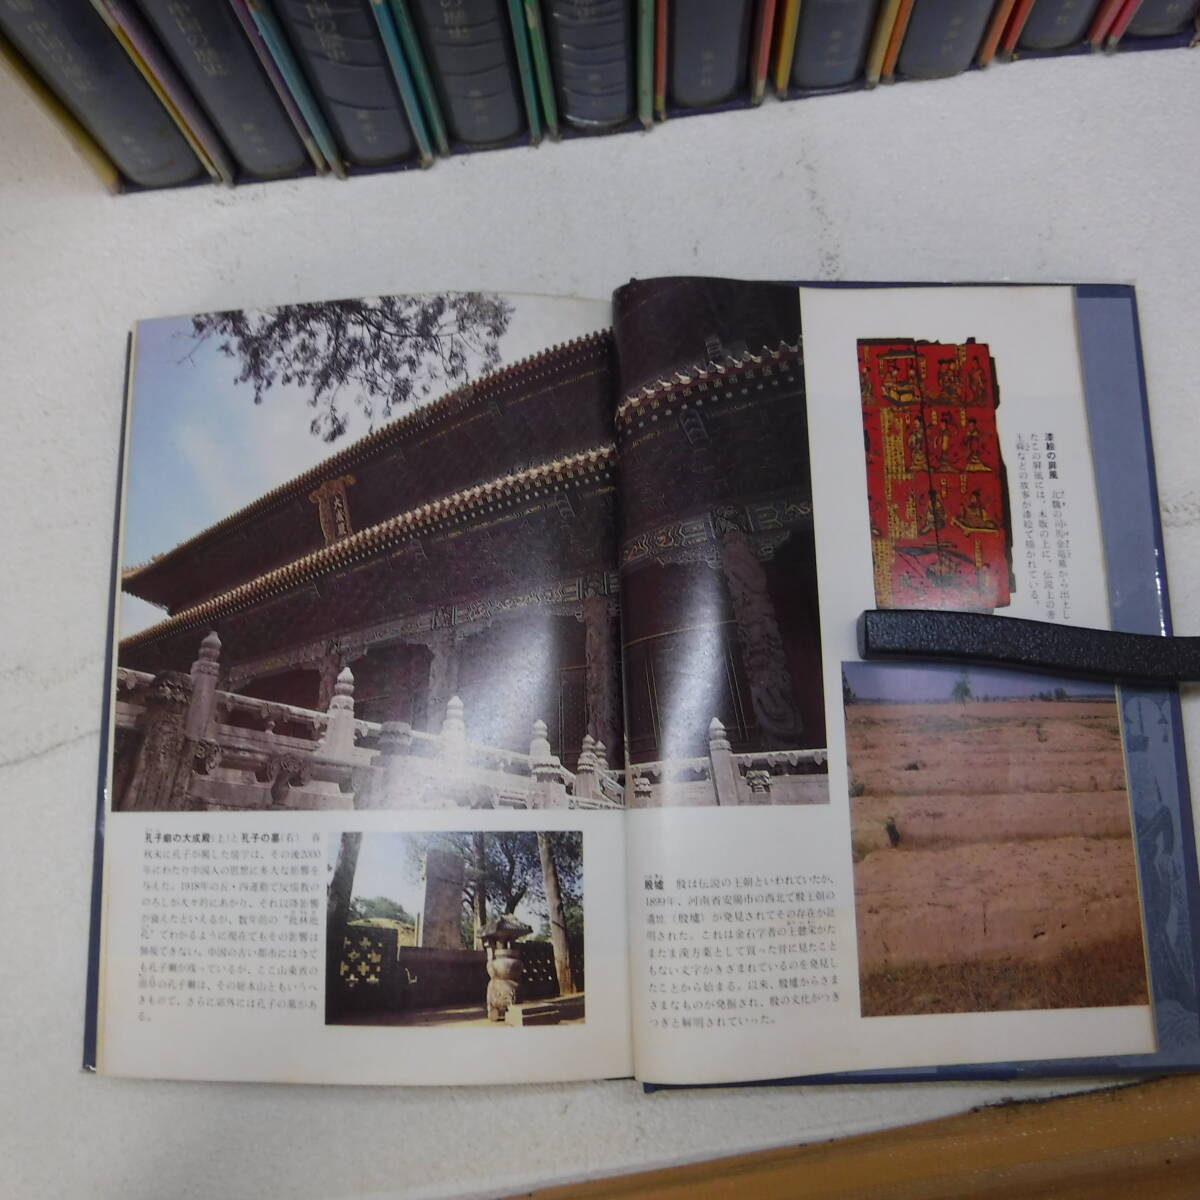 孔子廟の大成殿(上)と孔子の墓(右) 春
秋末に孔子が興した儒学は、その後2000
年にわたり中国人の思想に多大な影響を
与えた。1918年の五・四運動で反儒教の
のろしが大々的にあがり、それ以降影響
が衰えたといえるが、数年前の“批林批
孔”でわかるように現在でもその影響は
無視できない。中国の古い都市には今で
も孔子廟が残っているが、ここ山東省の
曲阜の孔子廟は、その総本山ともいうべ
きもので、さらに郊外には孔子の墓があ
る。
漆絵の屏風 北魏の司馬金竜墓から出土し
たこの屏風には、木板の上に、伝説上の孝
王舜などの故事が漆絵で描かれている。
殷墟 殷は伝説の王朝といわれていたが、
1899年、河南省安陽市の西北で殷王朝の
遺址(殷墟)が発見されてその存在が証
明された。これは金石学者の王懿栄がた
またま漢方薬として買った骨に見たこと
もない文字がきざまれているのを発見し
たことから始まる。以来、殷墟からさま
ざまなものが発掘され、殷の文化がつぎ
つぎと解明されていった。